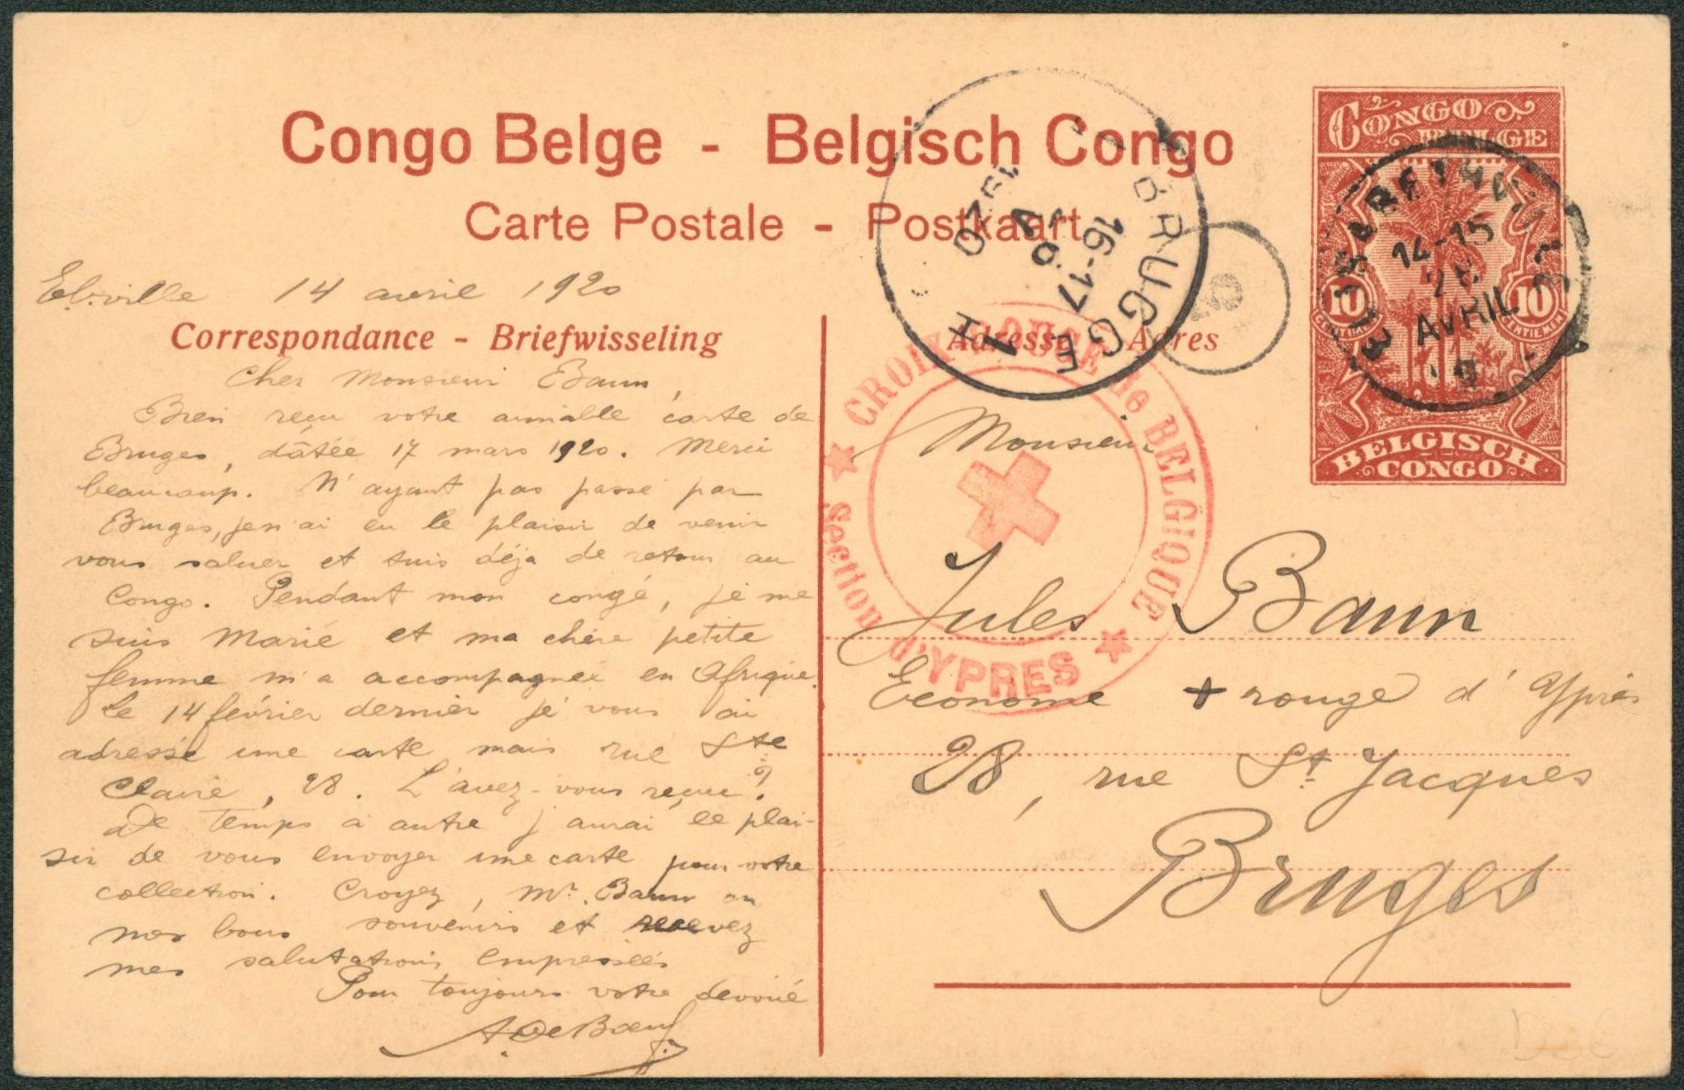 Congo Belge - Belgisch Congo
Carte Postale - Postkaart
CONGO
BELGE
10
10
BELGISCH
CONGO
ELISABETHVILLE
14-15
AVRIL
BRUGGE
1
16-17
1920
CROIX ROUGE de BELGIQUE
Section d'YPRES
El.ville 14 avril 1920
Correspondance - Briefwisseling
Cher Monsieur Baun,
Bien reçu votre aimable carte de
Bruges, dâtée 17 mars 1920. Merci
beaucoup. N'ayant pas passé par
Bruges, j'en ai eu le plaisir de venir
vous saluer et suis déja de retour au
Congo. Pendant mon congé, je me
suis Marié et ma chère petite
femme m'a accompagnée en Afrique.
Le 14 février dernier je vous ai
adressé une carte mais rue Ste
Claire, 28. L'avez-vous reçue?
De temps à autre j'aurai le plai-
sir de vous envoyer une carte pour votre
collection. Croyez, Mr. Baun en
nos bons souvenirs et recevez
mes salutations empressées
Pour toujours votre dévoué
A. De Boeuf
Adresse - Adres
Monsieur
Jules Baun
Econome + rouge d'Ypres
28, rue St Jacques
Bruges